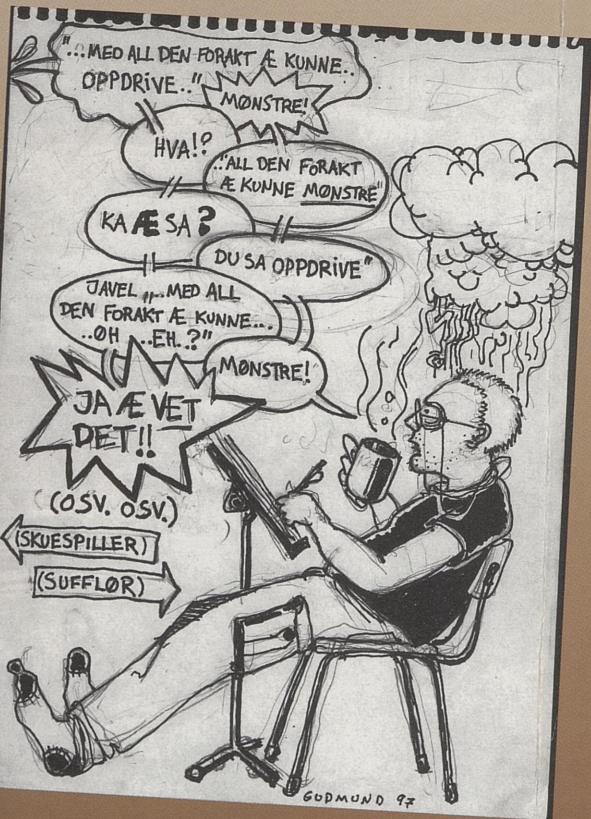 "... MED ALL DEN FORAKT Æ KUNNE..
OPPDRIVE.."
MØNSTRE!
HVA!?
.."ALL DEN FORAKT
Æ KUNNE MØNSTRE"
KA Æ SA?
DU SA OPPDRIVE"
JAVEL „...MED ALL
DEN FORAKT Æ KUNNE...
..ØH ...EH..?"
MØNSTRE!
JA Æ VET
DET!!
(OSV. OSV.)
(SKUESPILLER)
(SUFFLØR)
GUDMUND 97